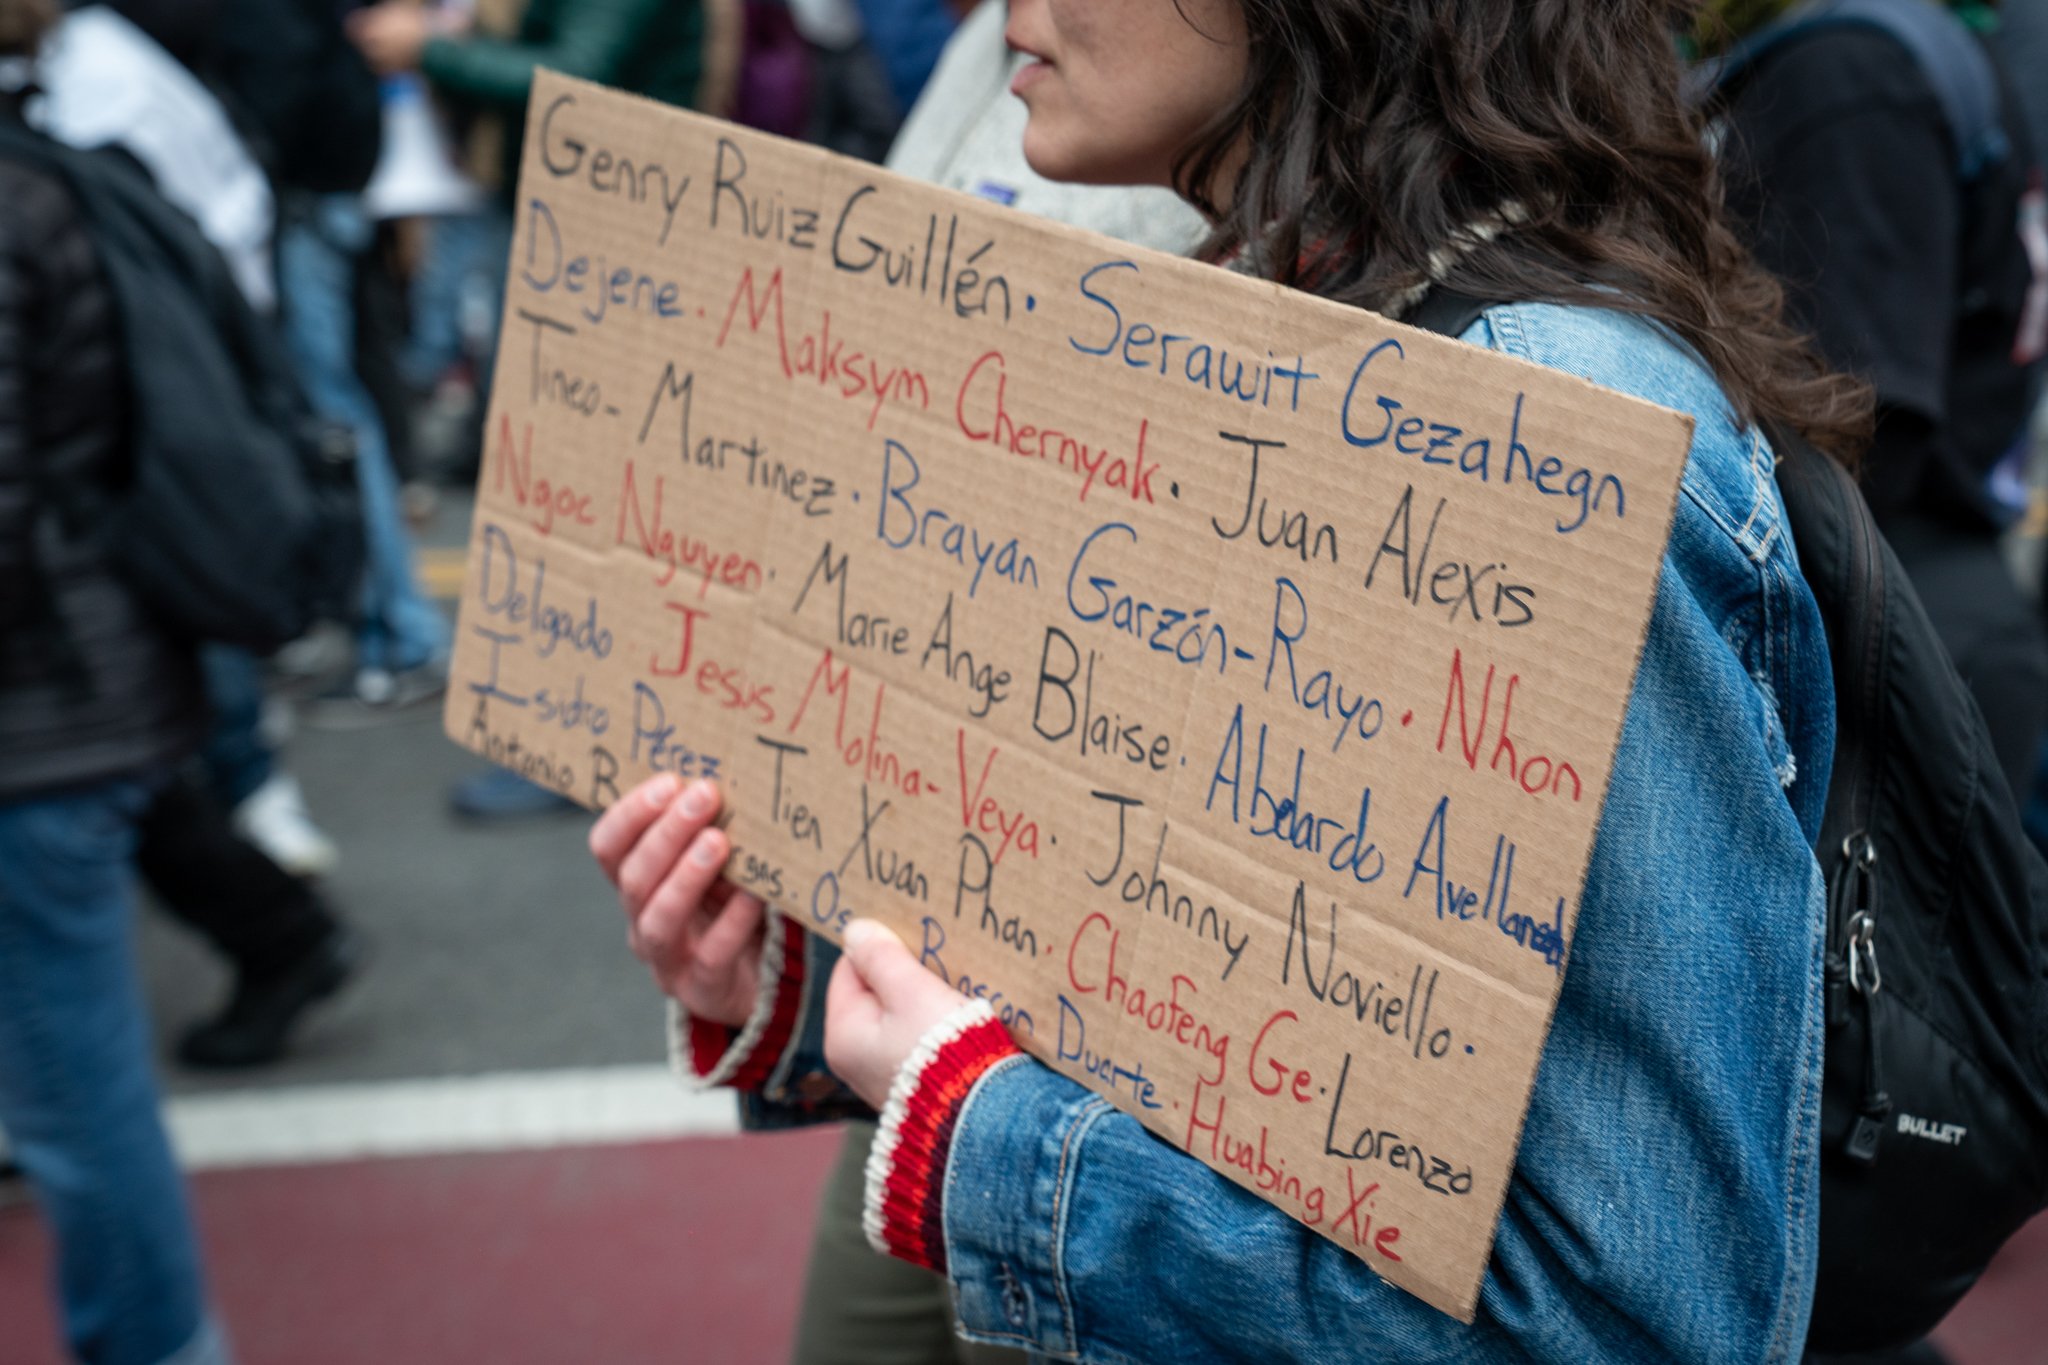 Genry Ruiz Guillén · Serawit Gezahegn
Dejene · Maksym Chernyak · Juan Alexis
Tineo-Martinez · Brayan Garzón-Rayo · Nhon
Ngoc Nguyen · Marie Ange Blaise · Abelardo Avellaneda
Delgado · Jesus Molina-Veya · Johnny Noviello ·
Isidro Pérez · Tien Xuan Phan · Chaofeng Ge · Lorenzo
Antonio Rascon Duarte · Huabing Xie
BULLET